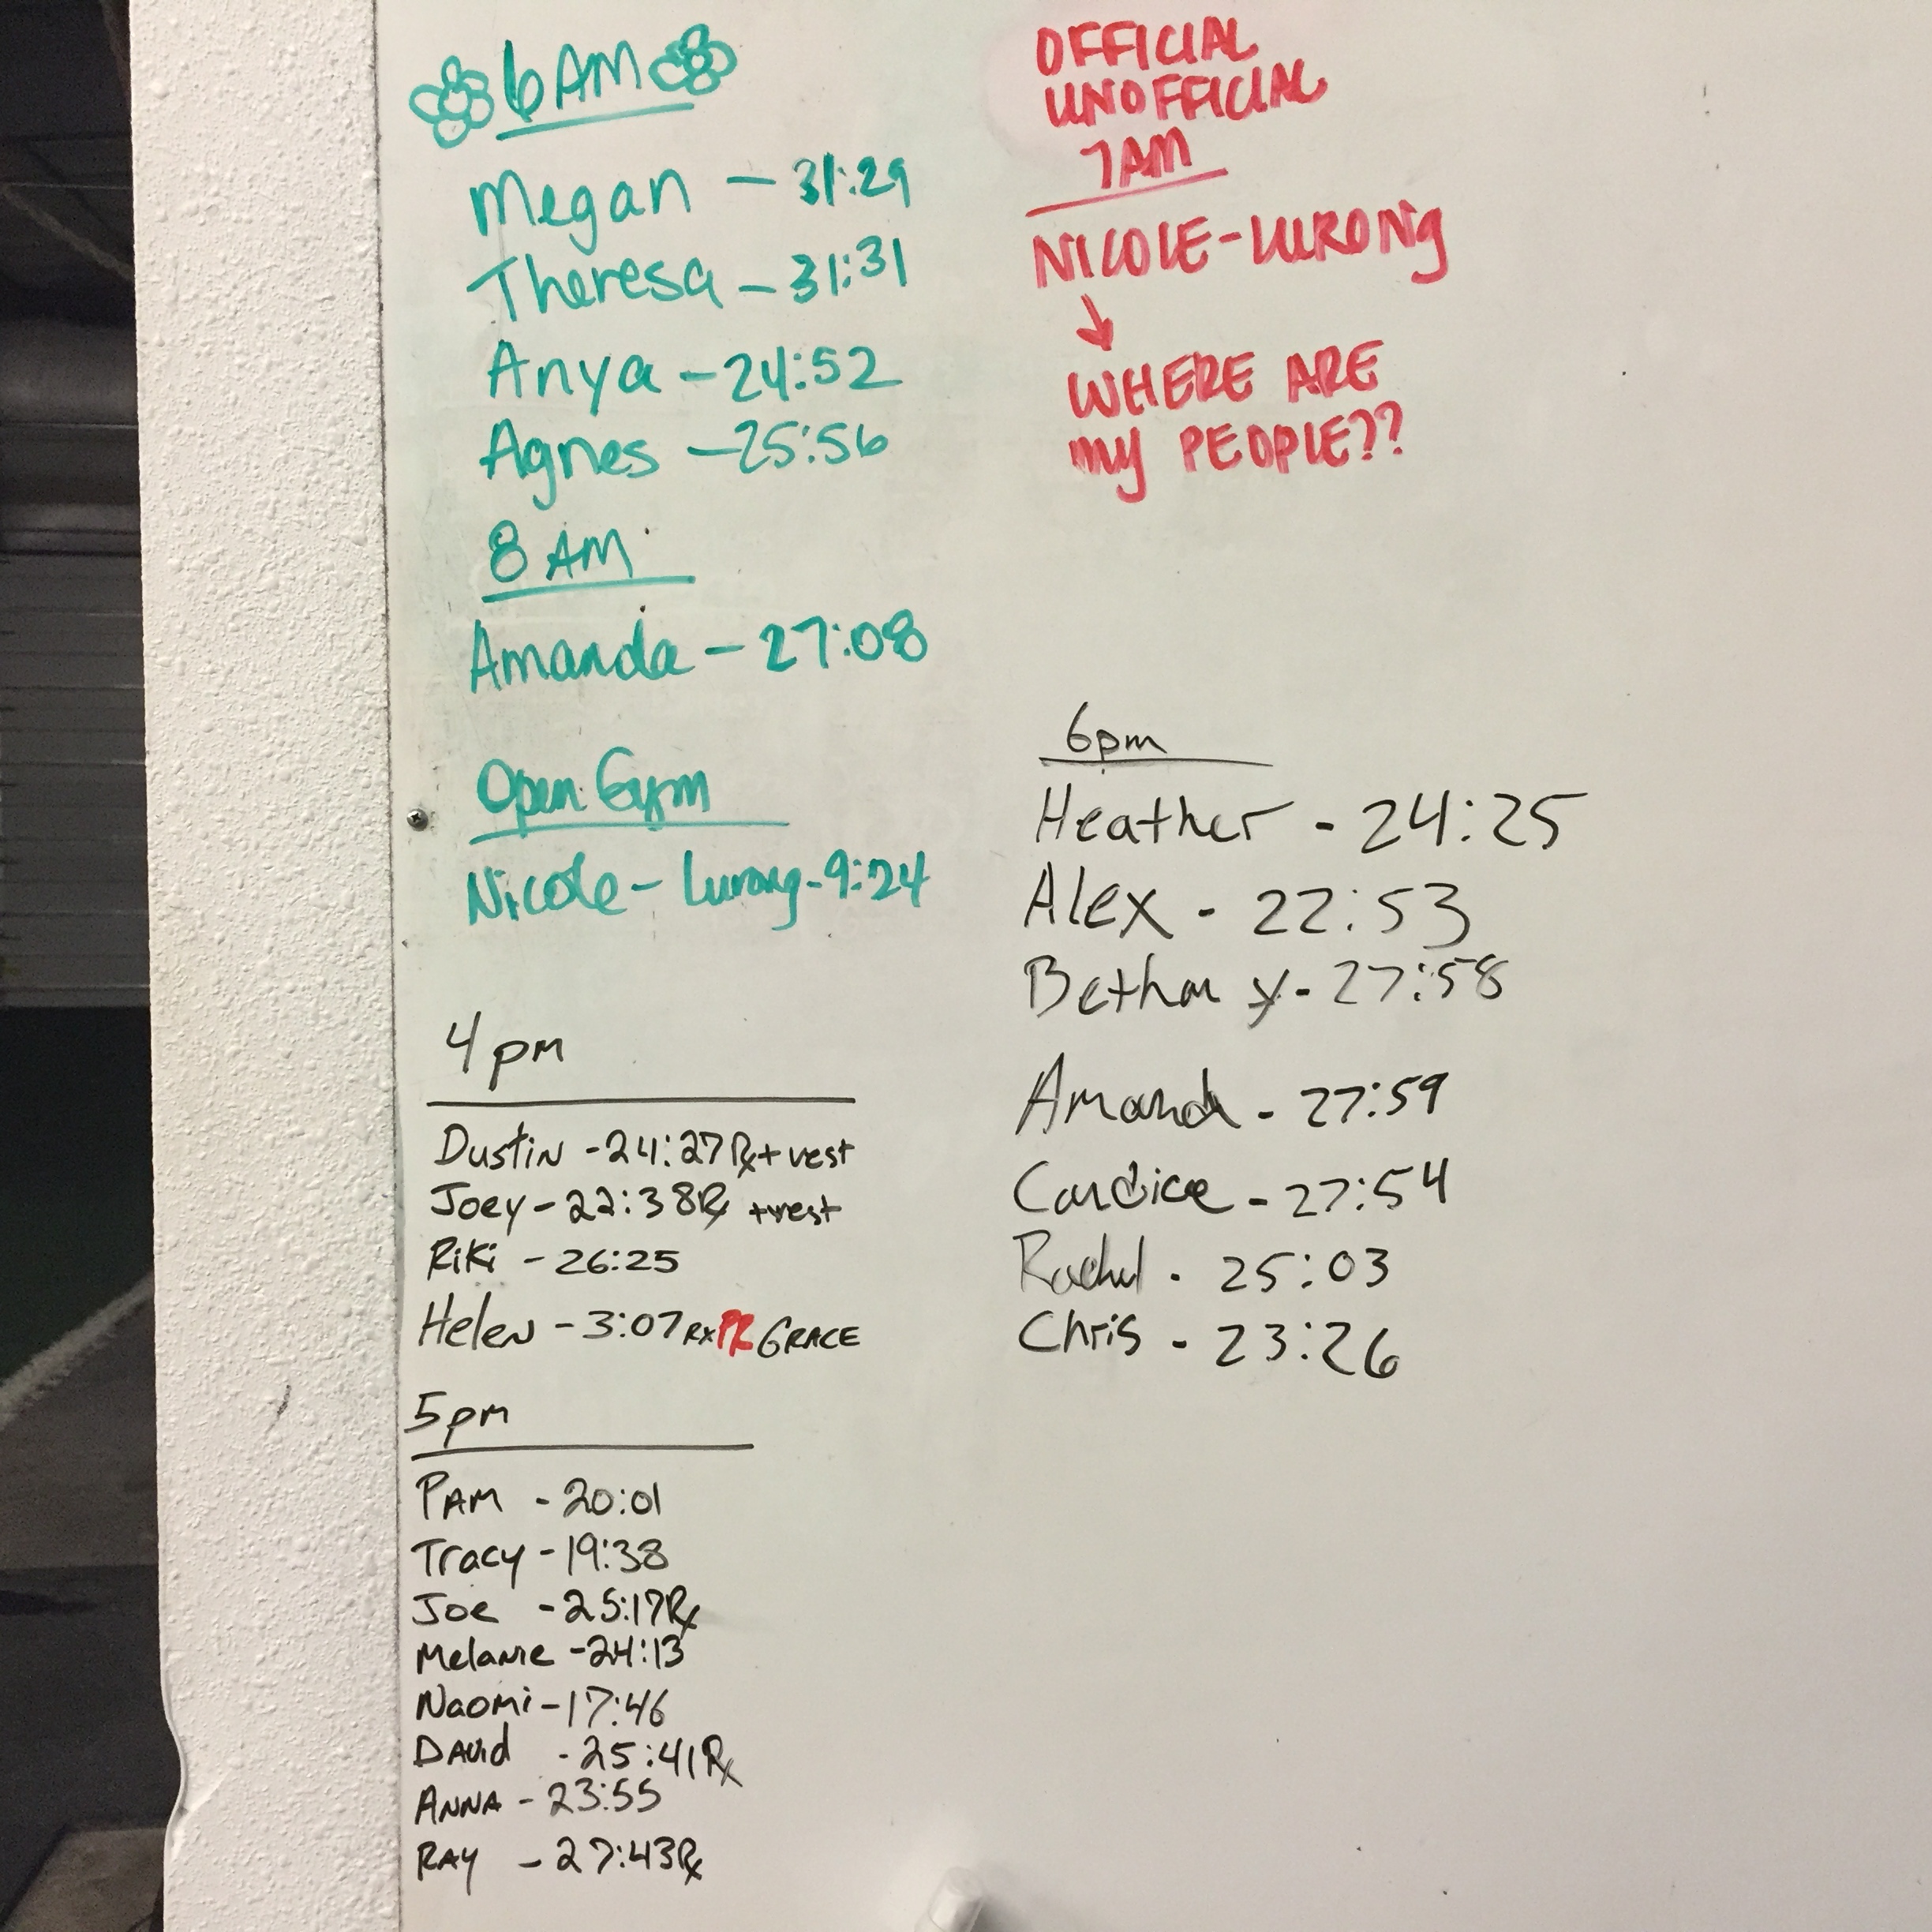 6 AM
Megan - 31:29
Theresa - 31:31
Anya - 24:52
Agnes - 25:56
8 AM
Amanda - 27:08
Open Gym
Nicole - Lurong - 9:24
4 pm
Dustin - 24:27 Rx + vest
Joey - 22:38 Rx + vest
Riki - 26:25
Helen - 3:07 Rx PR GRACE
5pm
PAM - 20:01
Tracy - 19:38
Joe - 25:17 Rx
Melanie - 24:13
Naomi - 17:46
David - 25:41 Rx
ANNA - 23:55
RAY - 27:43 Rx
OFFICIAL
UNOFFICIAL
7AM
NICOLE - LURONG
↓
WHERE ARE
MY PEOPLE??
6pm
Heather - 24:25
Alex - 22:53
Bethany - 27:58
Amanda - 27:59
Candice - 27:54
Rachel - 25:03
Chris - 23:26